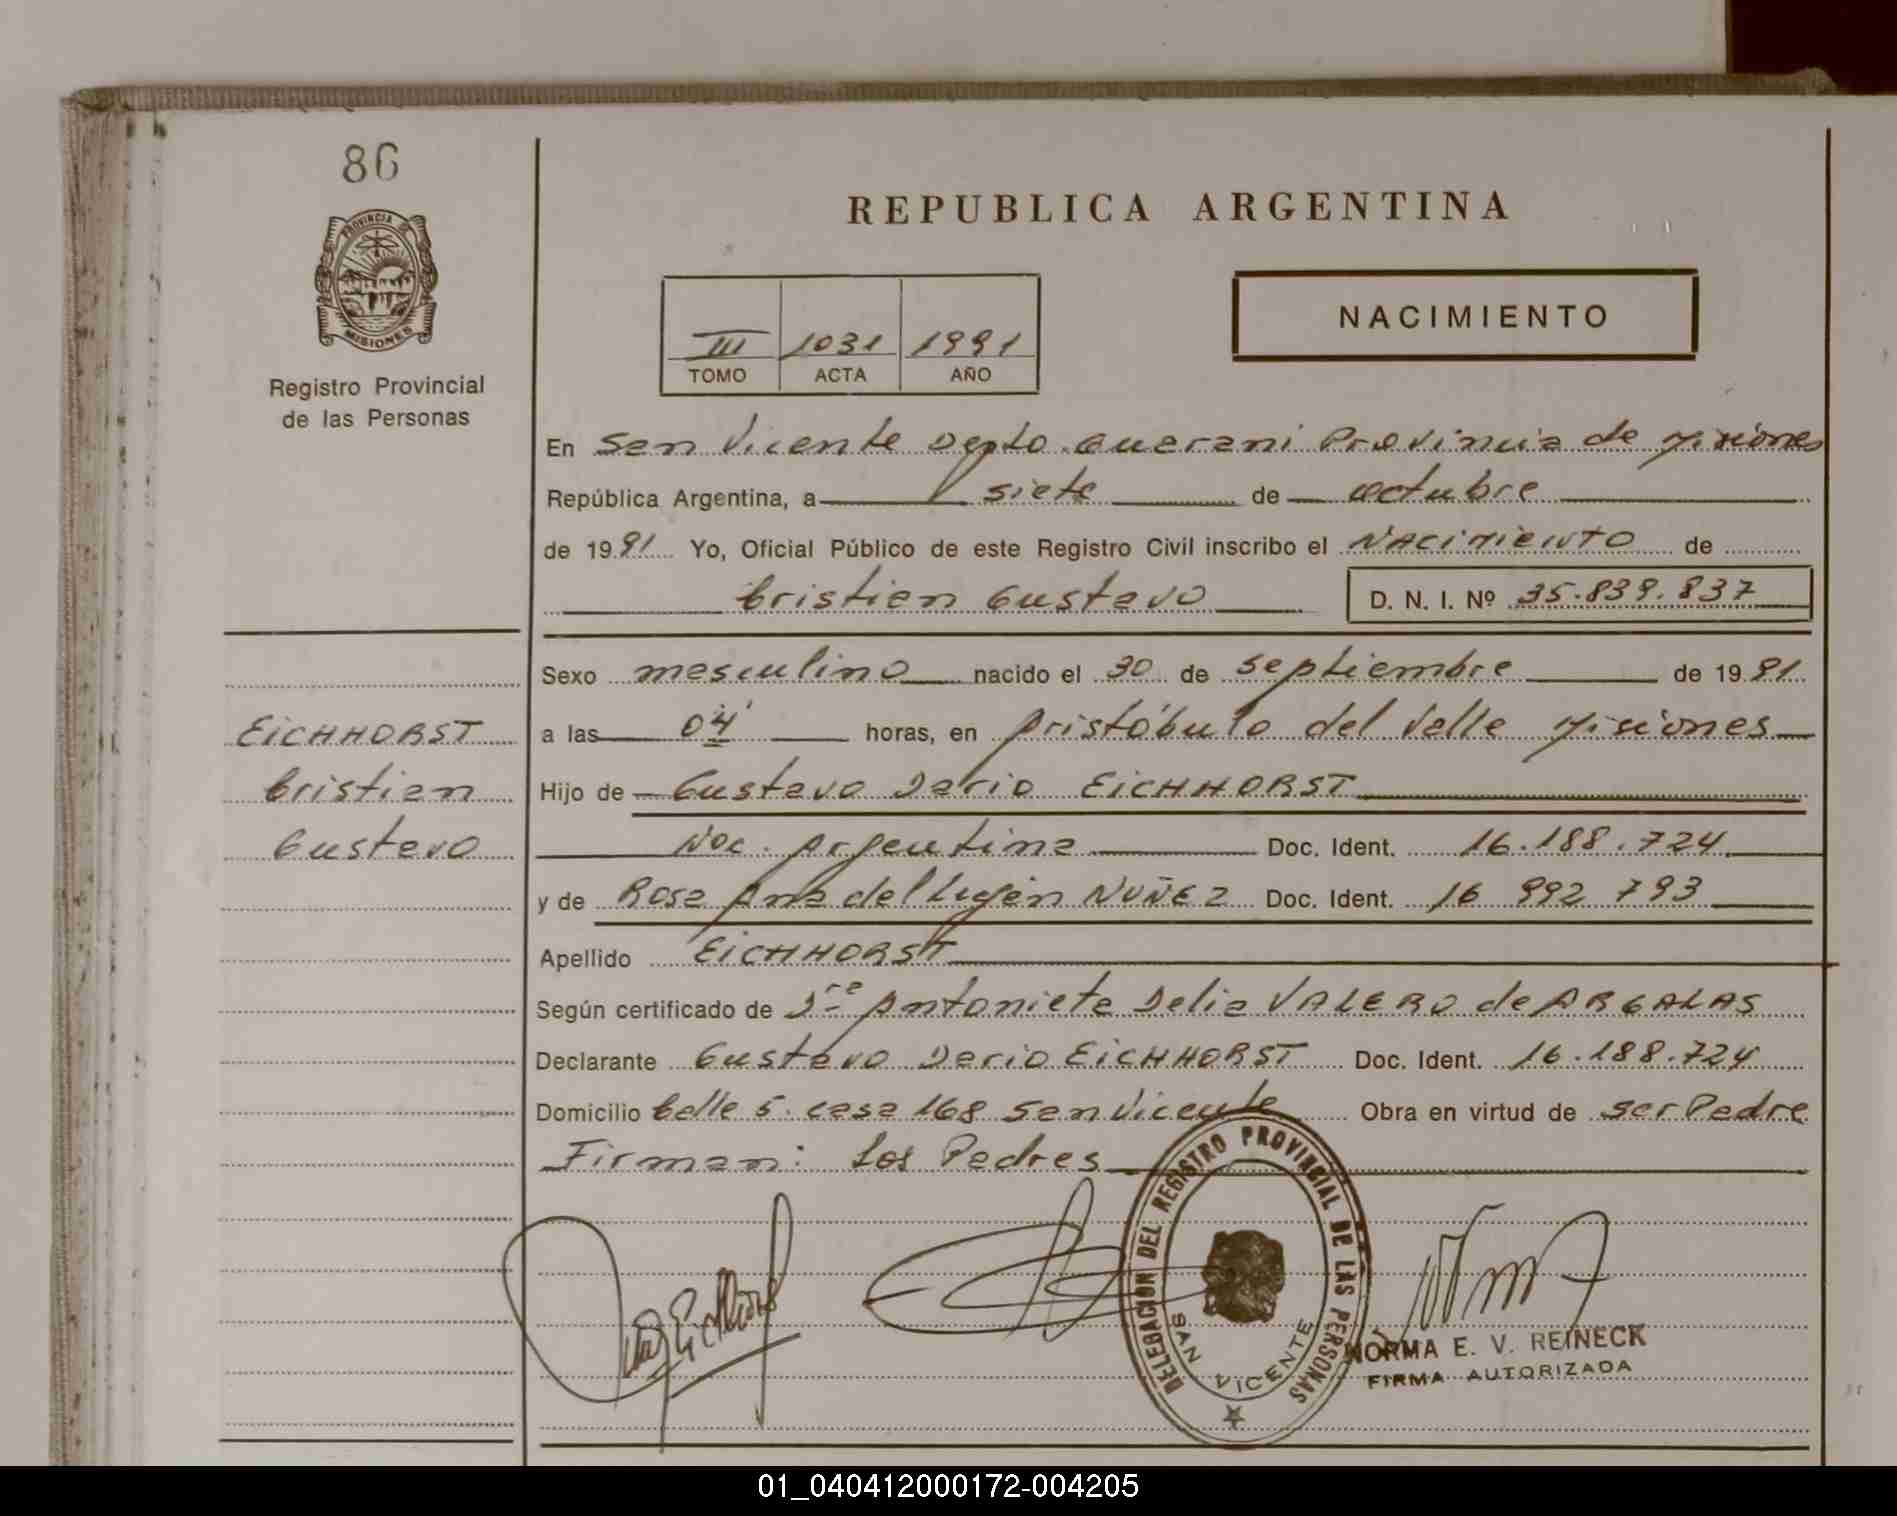 86
PROVINCIA DE
MISIONES
Registro Provincial
de las Personas
REPUBLICA ARGENTINA
III 1031 1991
TOMO ACTA AÑO
NACIMIENTO
En San Vicente Depto. Guarani Provincia de Misiones
República Argentina, a siete de octubre
de 1991 Yo, Oficial Público de este Registro Civil inscribo el NACIMIENTO de
Cristian Gustavo D. N. I. Nº 35.839.837
Sexo masculino nacido el 30 de septiembre de 1991
a las 04 horas, en Aristóbulo del Valle Misiones
Hijo de Gustavo Dario EICHHORST
Nac. Argentina Doc. Ident. 16.188.724
y de Rosa Ana del Luján NUÑEZ Doc. Ident. 16 992 793
Apellido EICHHORST
Según certificado de Dra Antonieta Delia VALERO de ARGALAS
Declarante Gustavo Dario EICHHORST Doc. Ident. 16.188.724
Domicilio Calle 5. casa 168 San Vicente Obra en virtud de ser Padre
Firman: Los Padres
EICHHORST
Cristian
Gustavo
DELEGACION DEL REGISTRO PROVINCIAL DE LAS PERSONAS
SAN VICENTE
NORMA E. V. REINECK
FIRMA AUTORIZADA
01_040412000172-004205